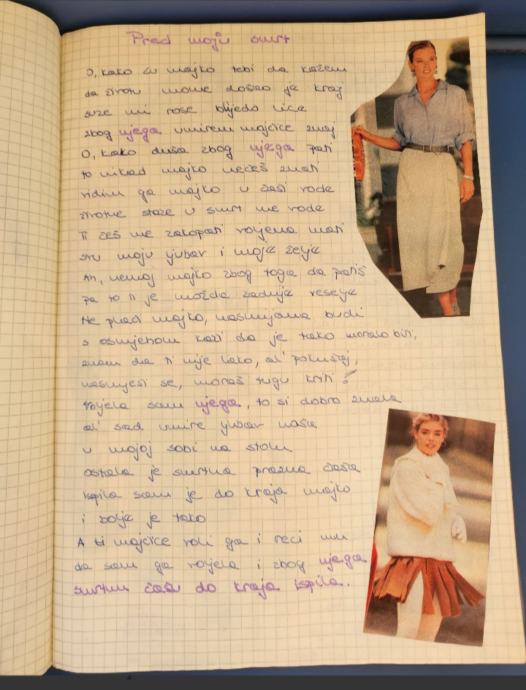 Pred moju smrt
O, kako ću majko tebi da kažem
da životu mome došao je kraj
suze mi rose blijedo lice
zbog njega umirem majčice znaj
O, kako duša zbog njega pati
to nikad majko nećeš znati
vidim ga majko u čaši vode
životne staze u smrt me vode
Ti ćeš me zakopati voljena mati
svu moju ljubav i moje želje
Ah, nemoj majko zbog toga da patiš
pa to ti je možda zadnje veselje
Ne plači majko, nasmijana budi
s osmjehom kaži da je tako moralo biti,
znam da ti nije lako, al' pokušaj,
nasmiješi se, moraš tugu kriti!
Voljela sam njega, to si dobro znala
al' sad umire ljubav naša
u mojoj sobi na stolu
ostala je smrtna prazna čaša
Ispila sam je do kraja majko
i bolje je tako
A ti majčice voli ga i reci mu
da sam ga voljela i zbog njega
smrtnu čašu do kraja ispila.